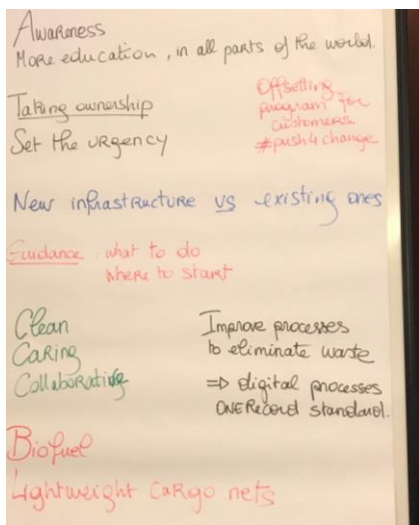 Awareness
More education, in all parts of the world.
Taking ownership
Set the urgency
Offsetting
program for
customers
#push4change
New infrastructure vs existing ones
Guidance: what to do
where to start
Clean
Caring
Collaborative
Improve processes
to eliminate waste
=> digital processes
ONE Record standard.
Biofuel
Lightweight cargo nets